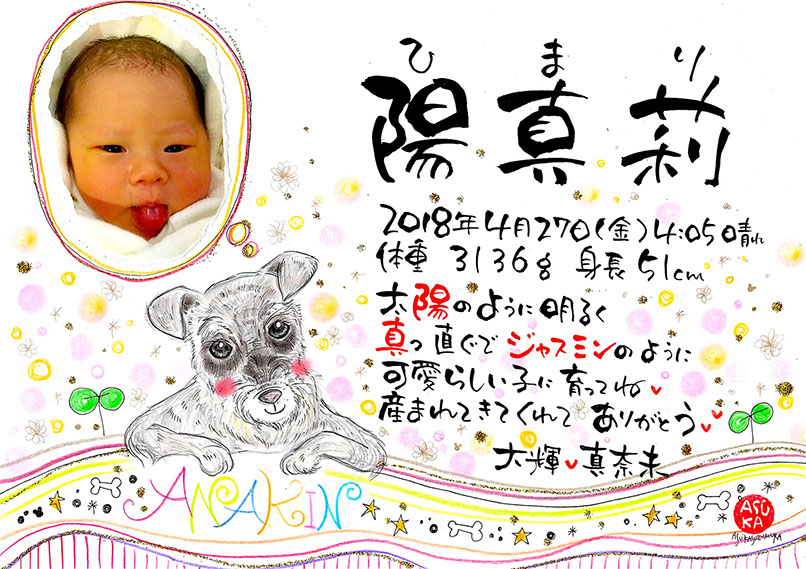 ひまり
陽真莉
2018年4月27日(金)4:05晴れ
体重 3136g 身長51cm
太陽のように明るく
真っ直ぐでジャスミンのように
可愛らしい子に育ってね
産まれてきてくれてありがとう
大輝 真奈未
ANAKIN
ASU
KA